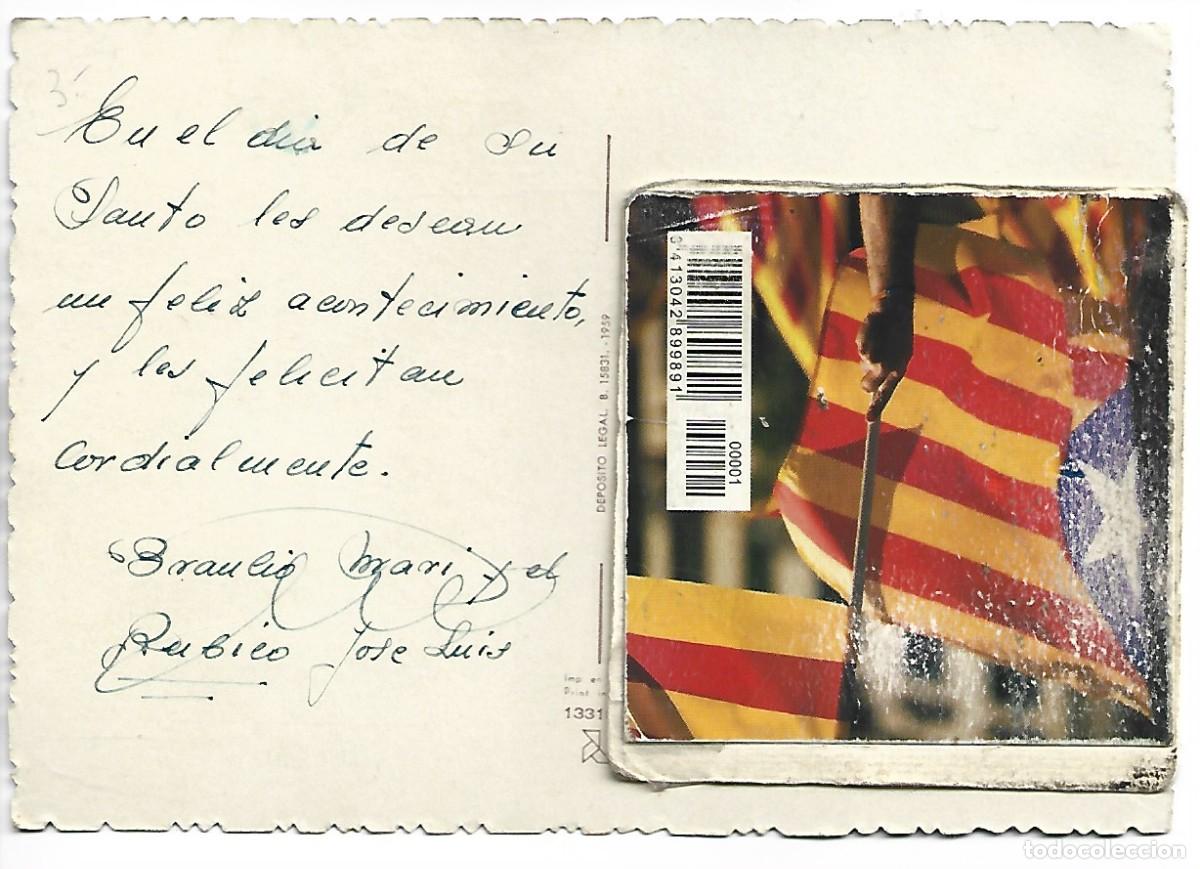 3'
En el dia de su
Santo les desean
un feliz acontecimiento,
y les felicitan
Cordialmente.
Braulio Mari
Rubico Jose Luis
DEPOSITO LEGAL. B. 15831. - 1959
Imp en
Print in
1331
3 413042 899891
00001
todocoleccion